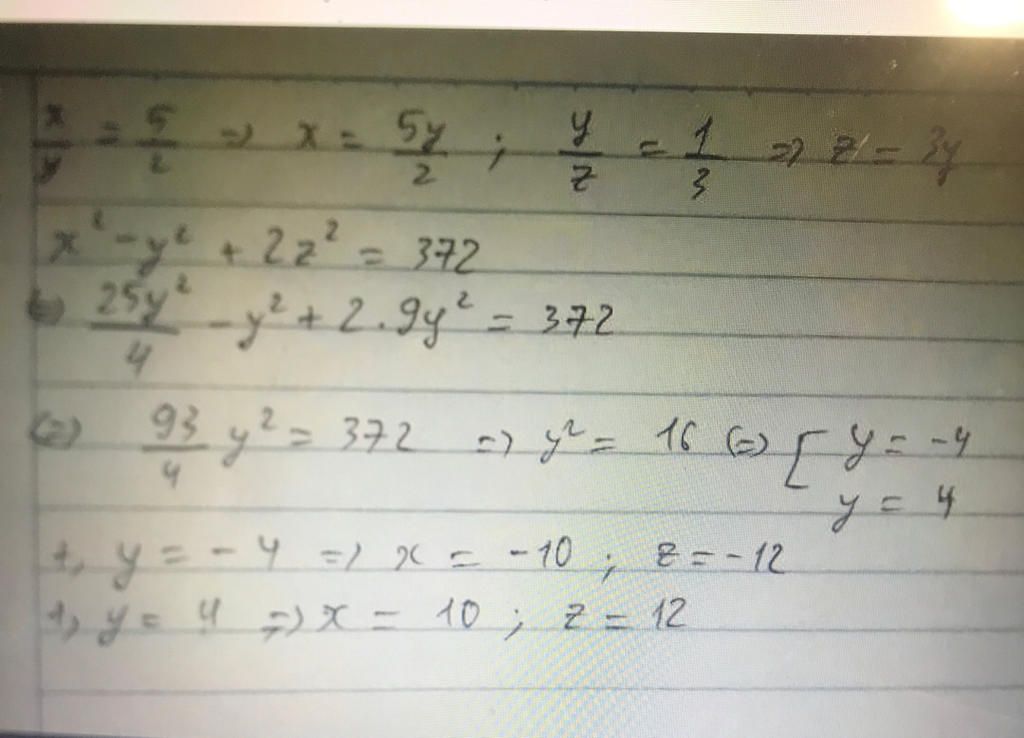 x/y = 5/2 => x = 5y/2 ; y/z = 1/3 => z = 3y
x² - y² + 2z² = 372
(=) 25y²/4 - y² + 2.9y² = 372
(=) 93/4 y² = 372 => y² = 16 (=) [ y = -4
y = 4
+, y = -4 => x = -10 ; z = -12
+, y = 4 => x = 10 ; z = 12